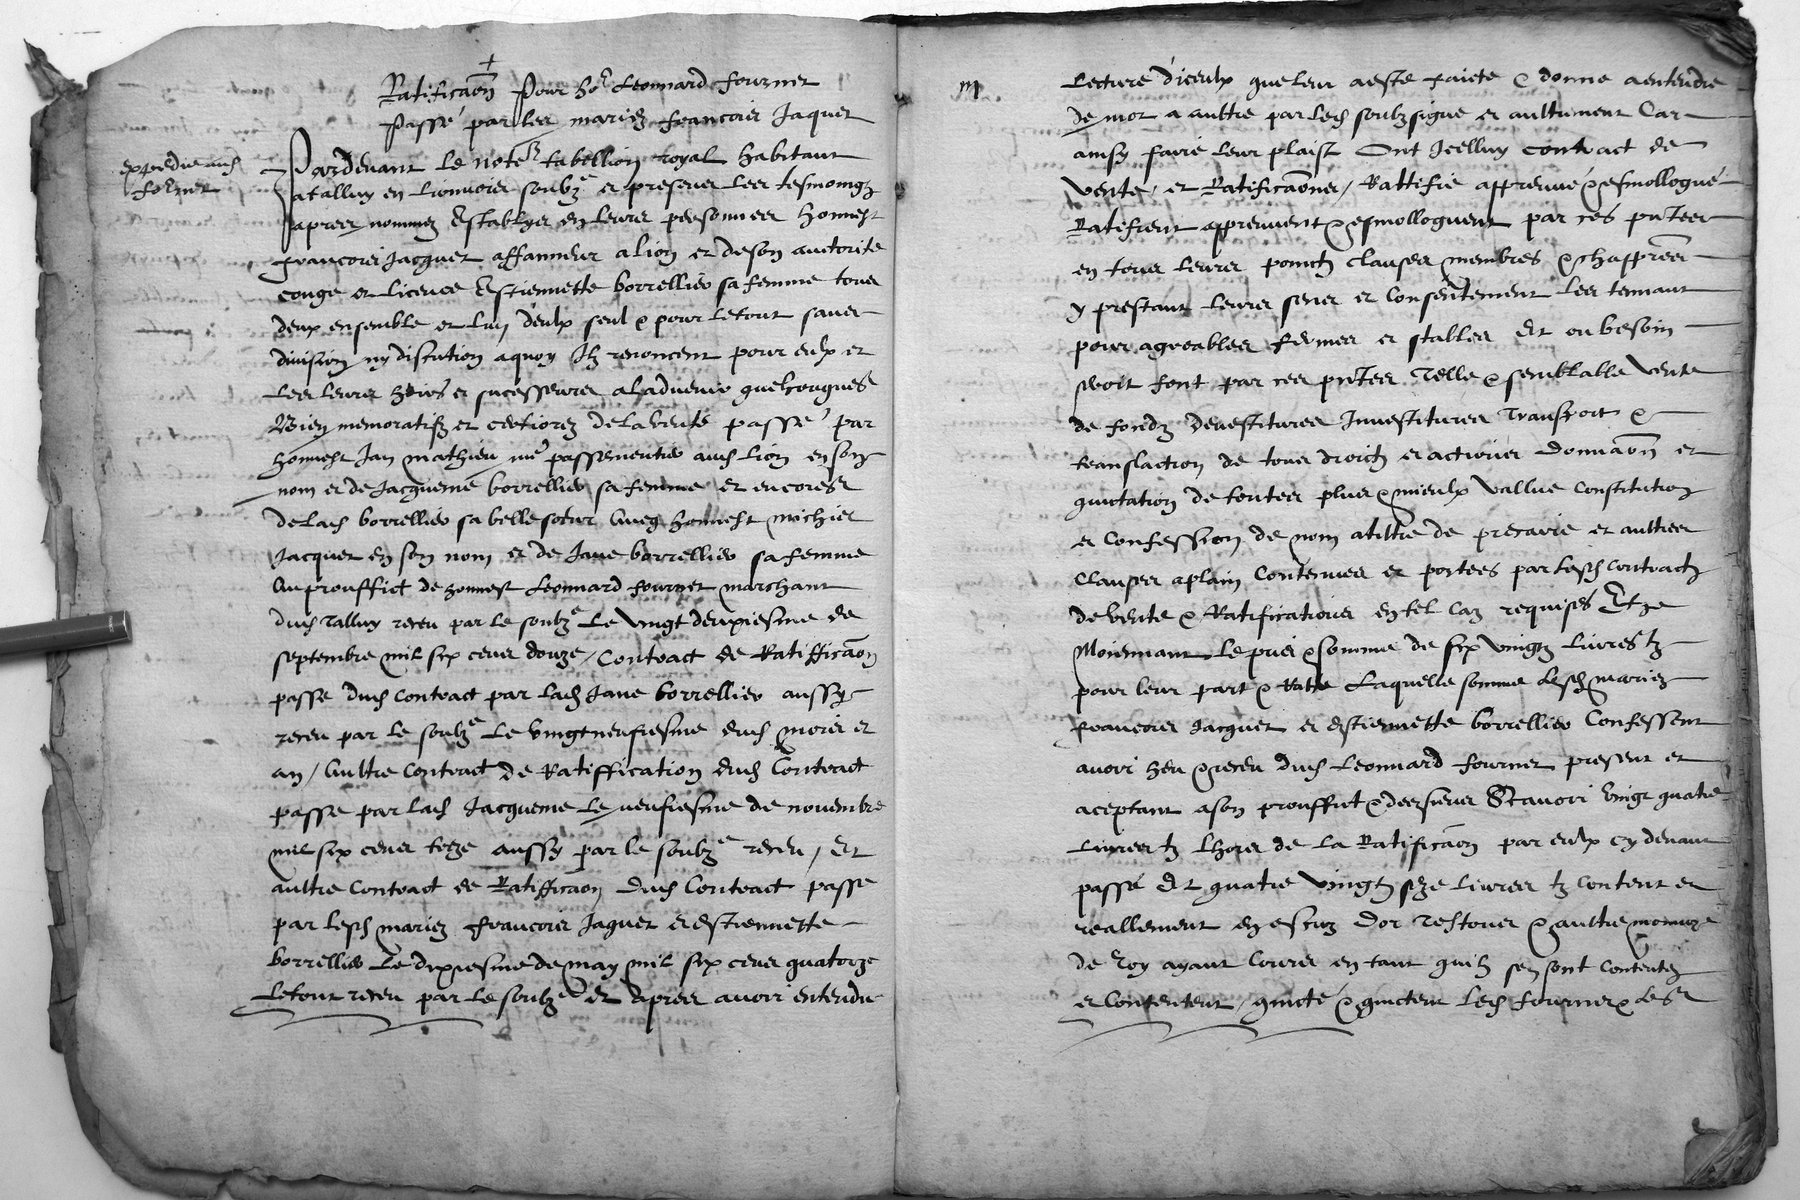 +
Ratificaon Pour ho^e Leonnard fournet
Passé par les mariez francois Jaquet
expediee aud
fornet
Pardevant le not^e tabellion royal habitant
a talluy en lionnois soubz^e et presens les tesmoingz
apres nommez Establys en leurs personnes honnest
francois Jacquet affanneur a lion et de son autorite
conge et licence Estiennette borrellier sa femme tous
deux ensemble et lung d'eulx seul & pour le tout sans
division ny discution a quoy Ilz renoncent pour eulx et
les leurs hoirs et sucesseurs a l'advenir quelconques
Bien memoratifz et certiorez de la vente passé par
honnest Jan mathieu m^e passementier aud lion en son
nom et de Jacqueme borrellier sa femme et encores
de lad borrellier sa belle soeur Aveq honnest michier
Jacquet en son nom et de Jane borrellier sa femme
Au prouffict de honnest Leonnard fournet marchant
dud Talluy receu par le soubz^e Le vingt deuxiesme de
septembre mil six cens douze / Contract de Ratifficaon
passe dud contract par lad Jane borrellier aussy
receu par le soubz^e Le vingt neufiesme dud mois et
an / Aultre Contract de Ratiffication dud Contract
passe par lad Jacqueme Le neufiesme de novembre
mil six cens treze aussy par le soubz^e receu / Et
aultre Contract de Ratifficaon dud Contract passe
par lesd mariez francois Jaquet et Estiennette
borrellier Le dixiesme de may mil six cens quatorze
Le tout receu par le soubz^e Et apres avoir entendu
m
Lecture d'iceulx que leur a esté faicte & donné a entendre
de mot a aultre par led soubzsigne et aultrement Car
ainsy faire leur plaist Ont Icelluy contract de
vente / et Ratificaones / Rattifié appreuué & esmollogué
Ratifient appreuuent & esmolloguent par ces pntes
en tous leurs poinctz clauses membres & chappitres
y prestant leurs sens et consentement les tennant
pour agreables fermes et stables Et ou besoin
seroit font par ces pntes Telle & semblable vente
de fondz devestitures Investitures Transport &
translaction de tous droictz et actions Donnaon et
quictation de toutes plus & mieulx vallue Constitution
et Confession de nom a tiltre de precaire et aultres
Clauses a plain Contenues et portees par lesd Contractz
de vente & Ratifications en tel Cas requises Et ce
Moiennant le pris & somme de six vingtz Livres tz
pour leur part & Ratte Laquelle somme lesd mariez
francois Jacquet et Estiennette borrellier Confessent
avoir heu & receu dud Leonnard fournet present et
aceptant a son prouffict & des siens Scavoir Vingt quatre
Livres tz Lhors de la Ratificaon par eulx cy devant
passé Et quatre vingtz seze Livres tz content et
reallement en escuz Dor Testons & aultre monnoye
de Roy ayant Cours en tant quilz sen sont Contentez
et Contentent / quicté & quictent Led fournet & les s^s